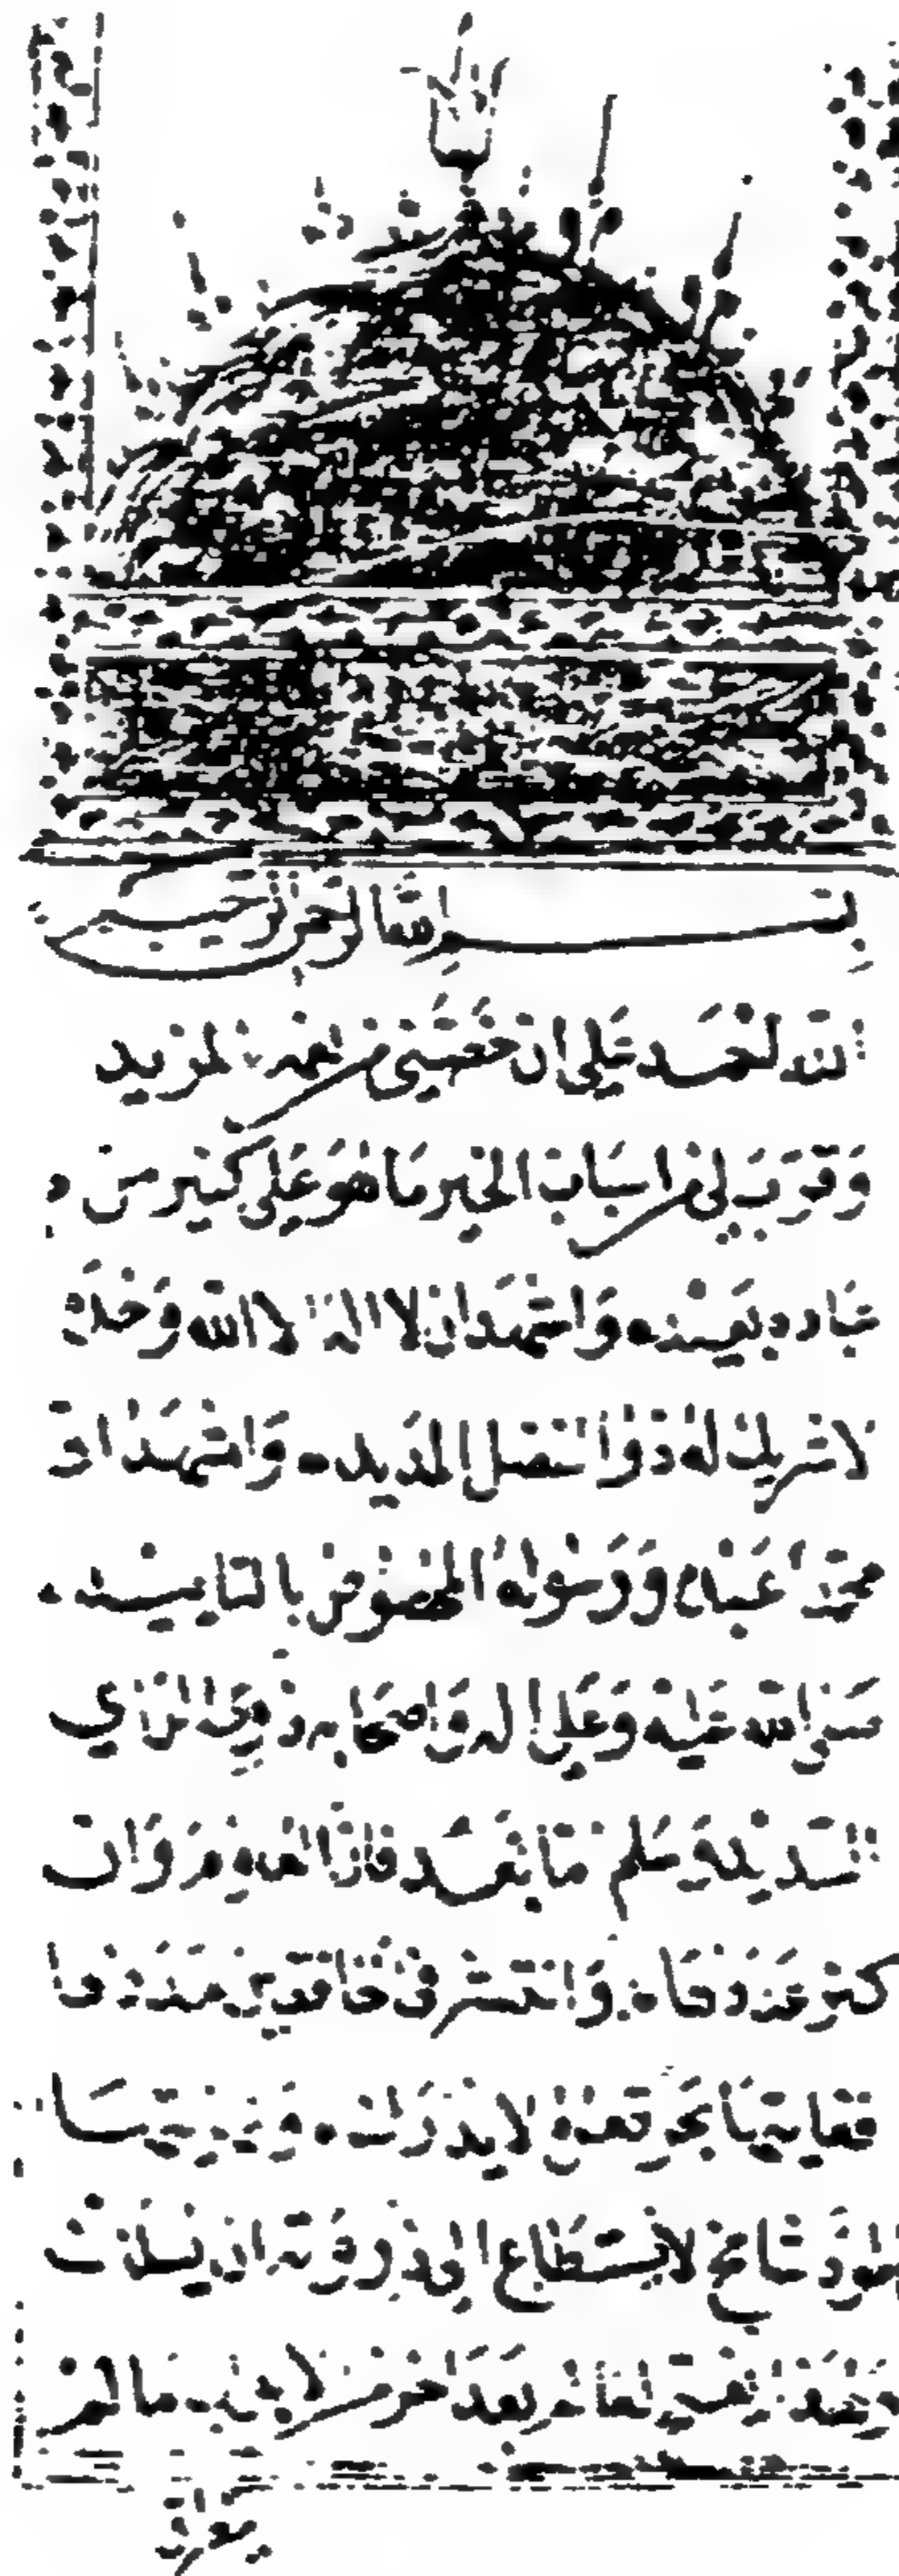 بسم الله الرحمن الرحيم
لله الحمد على ان خصني من نعمه بالمزيد
وَقَرَّبَ لي من اسباب الخير ما هو على كثير من
عباده بعيد وَاشهد ان لا اله الا الله وَحده
لا شريك له ذو الفضل المديد وَاشهد ان
محمدًا عبده وَرَسوله المخصوص بالتاييد
صلى الله عليه وَعلى اله وَاصحابه ذوي الراي
السديد وَسلم اما بعد فان العلوم وَان
كثر عددها وَانتشر في الخافقين مددها
فغايتها بحر قعره لا يدرك وَنهايتها
طود شامخ لا يستطاع الى ذروته ان يسلك
العالم بعد اخر من الابواب ما لم